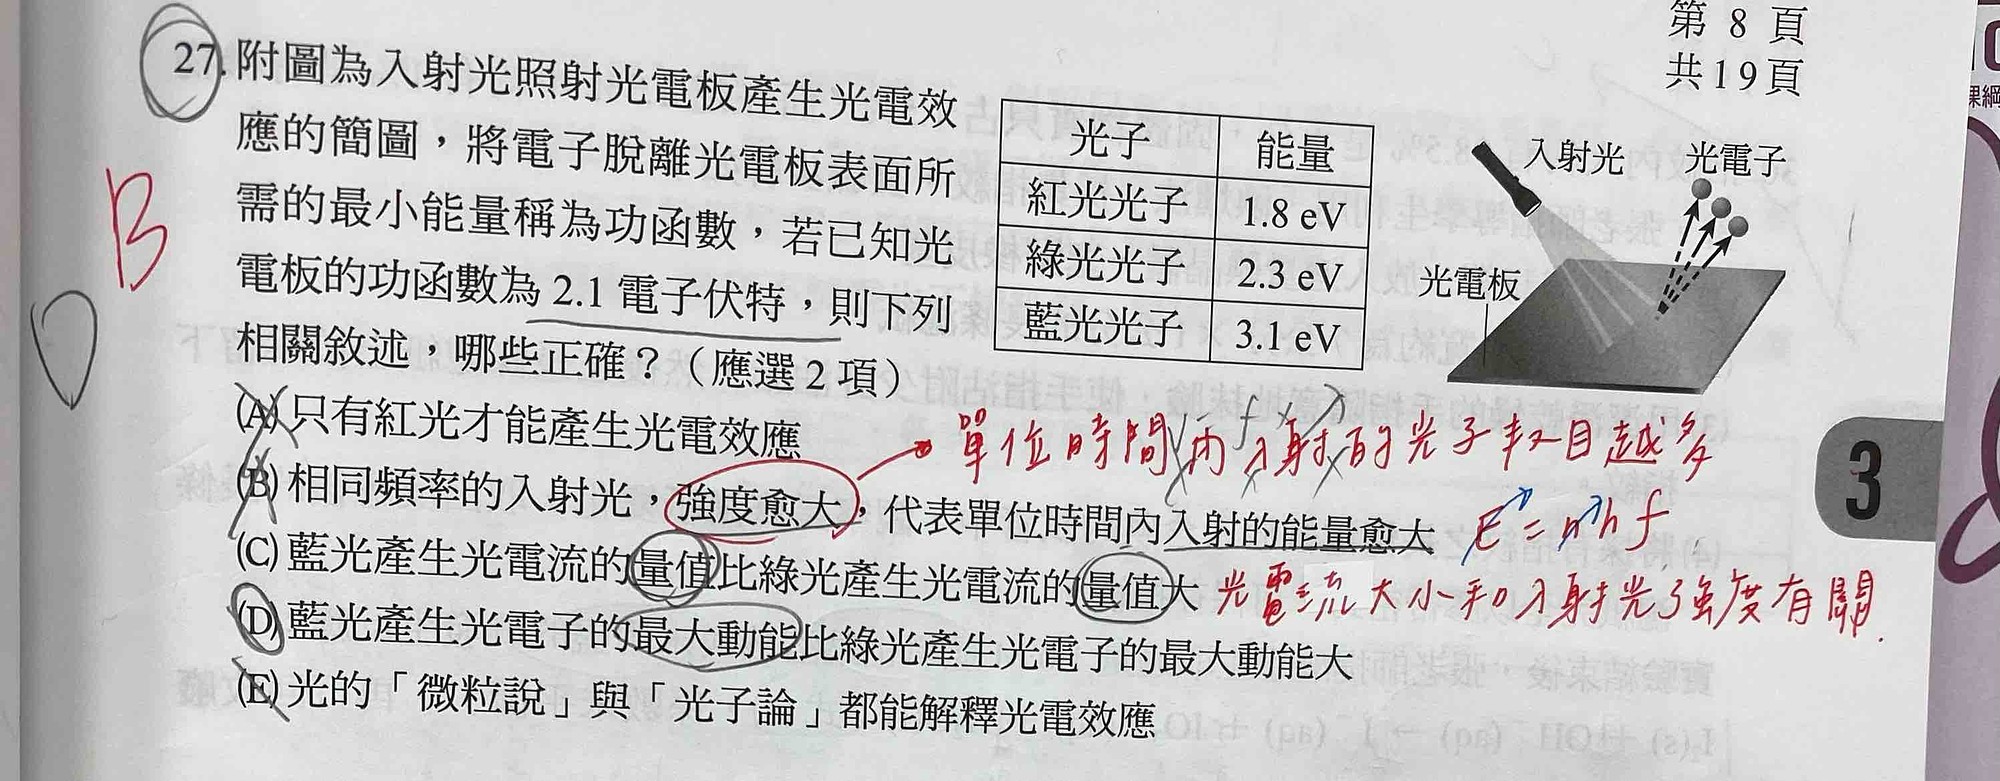 第 8 頁
共19頁
27. 附圖為入射光照射光電板產生光電效
應的簡圖，將電子脫離光電板表面所
需的最小能量稱為功函數，若已知光
電板的功函數為 2.1 電子伏特，則下列
相關敘述，哪些正確？（應選 2 項）
光子 能量
紅光光子 1.8 eV
綠光光子 2.3 eV
藍光光子 3.1 eV
入射光 光電子
光電板
B
D
(A) 只有紅光才能產生光電效應
單位時間內入射的光子數目越多
(B) 相同頻率的入射光，強度愈大，代表單位時間內入射的能量愈大 E=nhf
(C) 藍光產生光電流的量值比綠光產生光電流的量值大 光電流大小和入射光強度有關.
(D) 藍光產生光電子的最大動能比綠光產生光電子的最大動能大
(E) 光的「微粒說」與「光子論」都能解釋光電效應
3
課綱